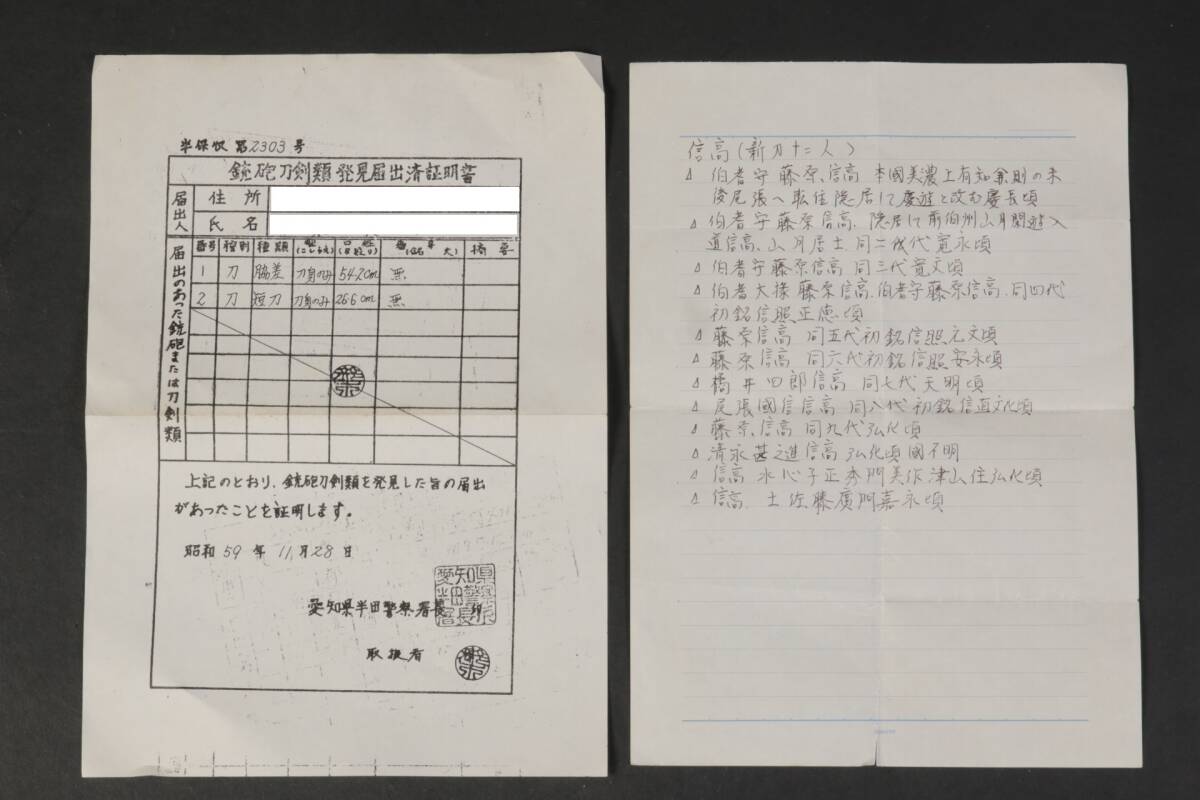 半保収第2303号
銃砲刀剣類発見届出済証明書
届出人
住所
氏名
届出のあった銃砲または刀剣類
番号 種別 種類 摘要
1 刀 脇差 刀身のみ 54.2cm 無
2 刀 短刀 刀身のみ 26.6cm 無
上記のとおり、銃砲刀剣類を発見した旨の届出
があったことを証明します。
昭和59年11月28日
愛知県半田警察署長 印
愛知県半田警察署長
取扱者
信高(新刀十二人)
△ 伯耆守藤原信高 本國美濃上有知兼則の末
後尾張へ転住隠居して慶遊と改む慶長頃
△ 伯耆守藤原信高、隠居して前伯州山月閑遊入
道信高、山月居士 同二代 寛永頃
△ 伯耆守藤原信高 同三代寛文頃
△ 伯耆大掾藤原信高、伯耆守藤原信高、同四代
初銘信照正徳頃
△ 藤原信高 同五代初銘信照元文頃
△ 藤原信高 同六代初銘信照安永頃
△ 橘井四郎信高 同七代天明頃
△ 尾張國信高 同八代初銘信直文化頃
△ 藤原信高 同九代弘化頃
△ 清永甚之進信高 弘化頃國不明
△ 信高 水心子正秀門美作津山住弘化頃
△ 信高、土佐藤廣門嘉永頃